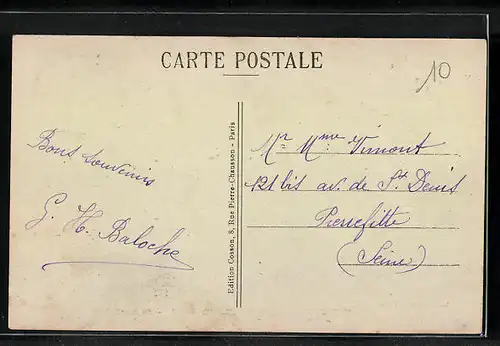 CARTE POSTALE
10
Bons souvenirs
G. H. Baloche
Edition Cosson, 8, Rue Pierre-Chausson - Paris
Mr Mme Vimont
121 bis av. de St Denis
Pierrefitte
(Seine)